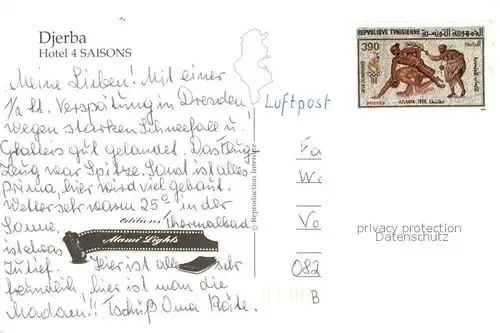 Djerba
Hotel 4 SAISONS
Meine Lieben! Mit einer
1/2 St. Verspätung in Dresden
wegen starken Schneefall u.
Glatteis gut gelandet. Das Flug-
Zeug war Spitze. Sonst ist alles
Prima, hier wird viel gebaut.
Wetter sehr warm 25° in der
Sonne. Thermalbad
ist etwas
zu tief. Hier ist alles sehr
freundlich hier ist man die
Madam!! Tschüß Oma Käte.
editions
Miami Lights
© Reproduction Interdite
Luftpost
REPVBLIQUE TVNISIENNE الجمهورية التونسية
390
POSTES
ATLANTA 1996
Fa
We
Vo
082
B
privacy protection
Datenschutz